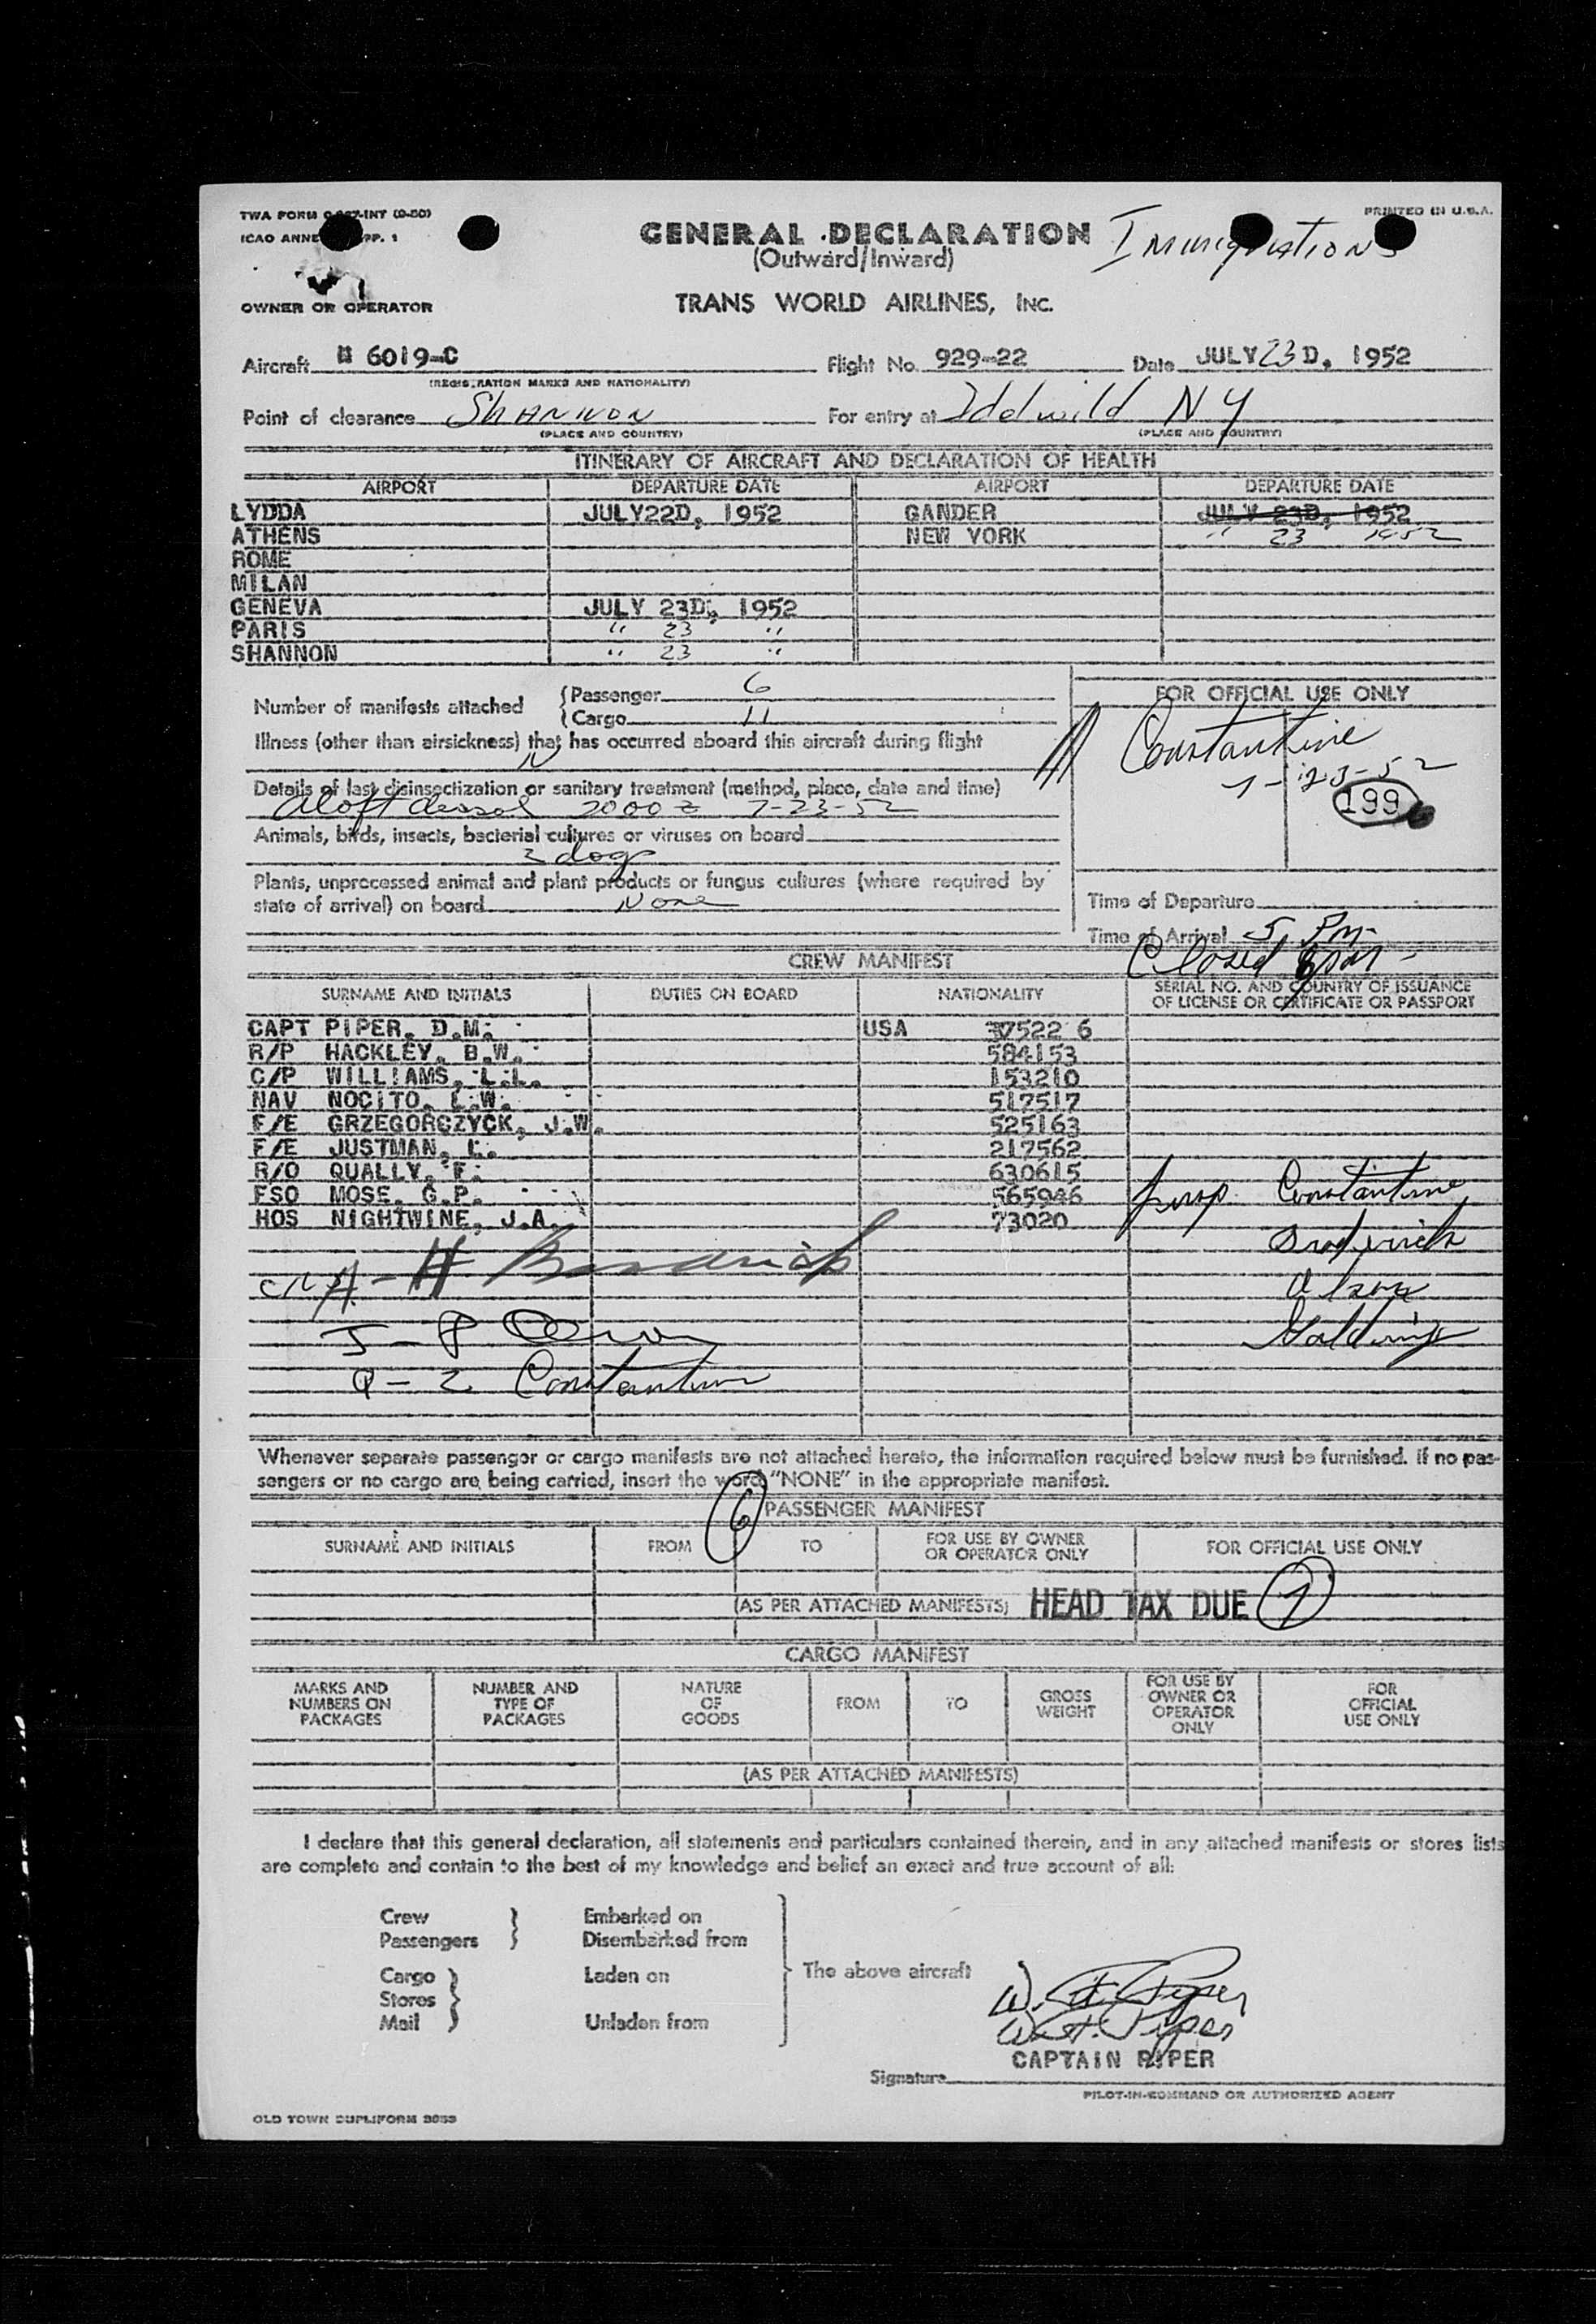 TWA FORM INT (9-50)
PRINTED IN U.S.A.
ICAO ANNE PP. 1
GENERAL DECLARATION
Immigration
(Outward/Inward)
OWNER OR OPERATOR
TRANS WORLD AIRLINES, INC.
Aircraft N 6019-C Flight No. 929-22 Date JULY 23D, 1952
(REGISTRATION MARKS AND NATIONALITY)
Point of clearance Shannon For entry at Idlewild NY
(PLACE AND COUNTRY) (PLACE AND COUNTRY)
ITINERARY OF AIRCRAFT AND DECLARATION OF HEALTH
AIRPORT DEPARTURE DATE AIRPORT DEPARTURE DATE
LYDDA JULY22D, 1952 GANDER JULY 23D, 1952
ATHENS NEW YORK " 23 1952
ROME
MILAN
GENEVA JULY 23D, 1952
PARIS " 23 "
SHANNON " 23 "
Number of manifests attached
{Passenger 6
{Cargo 11
FOR OFFICIAL USE ONLY
Illness (other than airsickness) that has occurred aboard this aircraft during flight
Constantine
7-23-52
199
Details of last disinsectization or sanitary treatment (method, place, date and time)
Aloft 2000 Z 7-23-52
Animals, birds, insects, bacterial cultures or viruses on board
dogs
Plants, unprocessed animal and plant products or fungus cultures (where required by
state of arrival) on board None
Time of Departure
Time of Arrival 5 Pm
Closed
CREW MANIFEST
SURNAME AND INITIALS DUTIES ON BOARD NATIONALITY SERIAL NO. AND COUNTRY OF ISSUANCE
OF LICENSE OR CERTIFICATE OR PASSPORT
CAPT PIPER, D.M. USA 37522 6
R/P HACKLEY, B.W. 584153
C/P WILLIAMS, L.L. 153210
NAV NOCITO, L.W. 517517
F/E GRZEGORCZYCK, J.W. 525163
F/E JUSTMAN, L. 217562
R/O QUALLY, F. 630615
FSO MOSE, G.P. 565946 Insp Constantine
HOS NIGHTWINE, J.A. 73020
Q - Z Constantine
Whenever separate passenger or cargo manifests are not attached hereto, the information required below must be furnished. If no pas-
sengers or no cargo are being carried, insert the word "NONE" in the appropriate manifest.
6 PASSENGER MANIFEST
SURNAME AND INITIALS FROM TO FOR USE BY OWNER
OR OPERATOR ONLY FOR OFFICIAL USE ONLY
(AS PER ATTACHED MANIFESTS) HEAD TAX DUE 7
CARGO MANIFEST
MARKS AND
NUMBERS ON
PACKAGES NUMBER AND
TYPE OF
PACKAGES NATURE
OF
GOODS FROM TO GROSS
WEIGHT FOR USE BY
OWNER OR
OPERATOR
ONLY FOR
OFFICIAL
USE ONLY
(AS PER ATTACHED MANIFESTS)
I declare that this general declaration, all statements and particulars contained therein, and in any attached manifests or stores lists
are complete and contain to the best of my knowledge and belief an exact and true account of all:
Crew Embarked on
Passengers Disembarked from
Cargo Laden on The above aircraft
Stores
Mail Unladen from
Piper
Piper
CAPTAIN PIPER
Signature
PILOT-IN-COMMAND OR AUTHORIZED AGENT
OLD TOWN DUPLIFORM